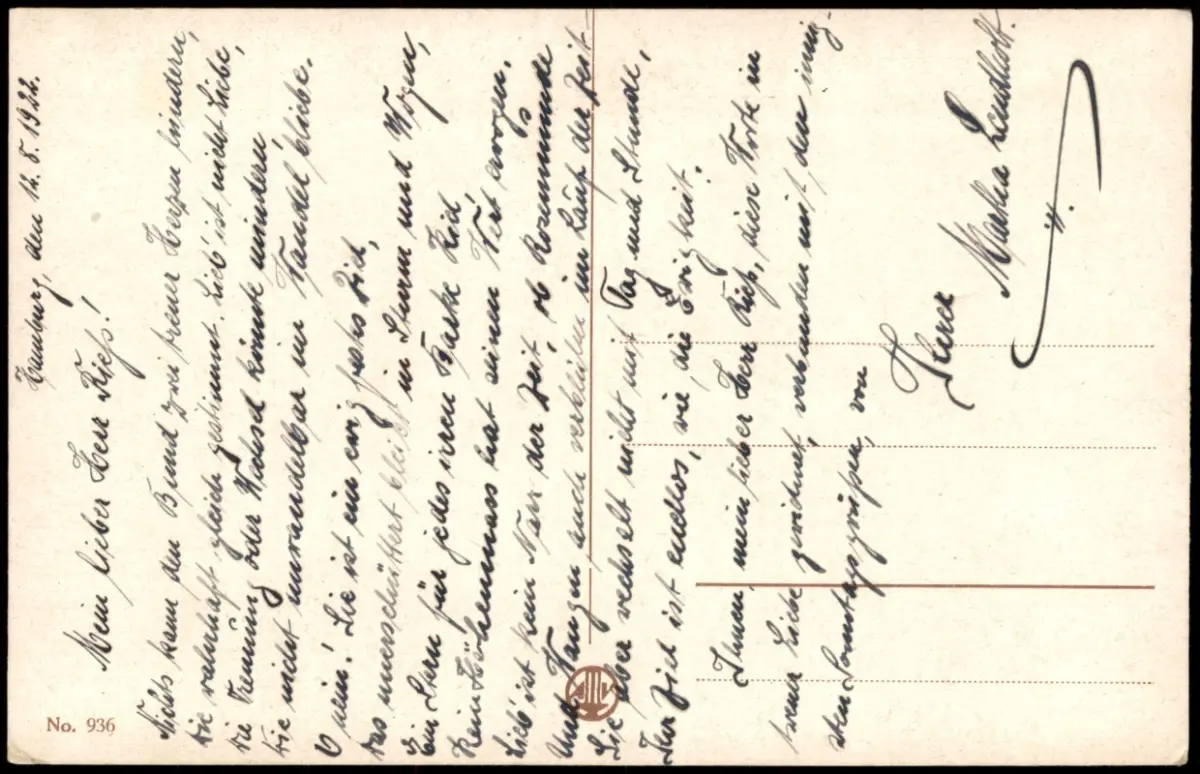 Hamburg, den 12. 8. 1922.
Mein lieber Herr Rieß!
Nichts kann den Bund zwei treuer Herzen hindern,
die wahrhaft gleich gestimmt. Lieb' ist nicht Liebe,
die Trennung oder Wechsel könnte mindern,
die nicht unwandelbar im Wandel bliebe.
O nein! Sie ist ein ewig festes Ziel,
das unerschüttert bleibt in Sturm und Wogen,
Ein Stern für jedes irren Barke Kiel
Kein Höhenmass hat seinen Wert erwogen.
Lieb' ist kein Narr der Zeit, ob Rosenmunde
Und Wangen auch verblühn im Lauf der Zeit
Sie aber wechselt nicht mit Tag und Stunde,
Ihr Ziel ist endlos, wie die Ewigkeit.
Ihnen, mein lieber Herr Rieß, diese Worte in
treuer Liebe gewidmet, verbunden mit den innig-
sten Sonntagsgrüßen, von
Ihrer
Martha
No. 936